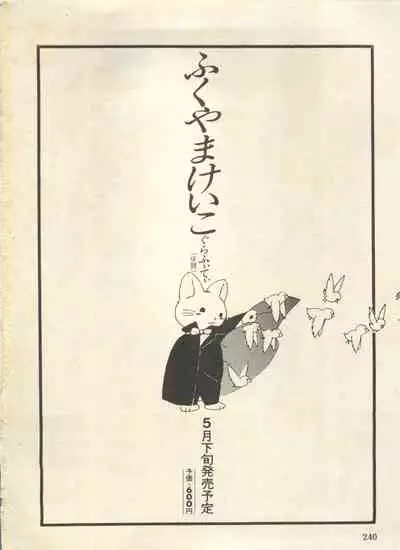 ふくやまけいこ
ぐらふぃてぃ
(仮題)
5月下旬発売予定
予価・600円
240